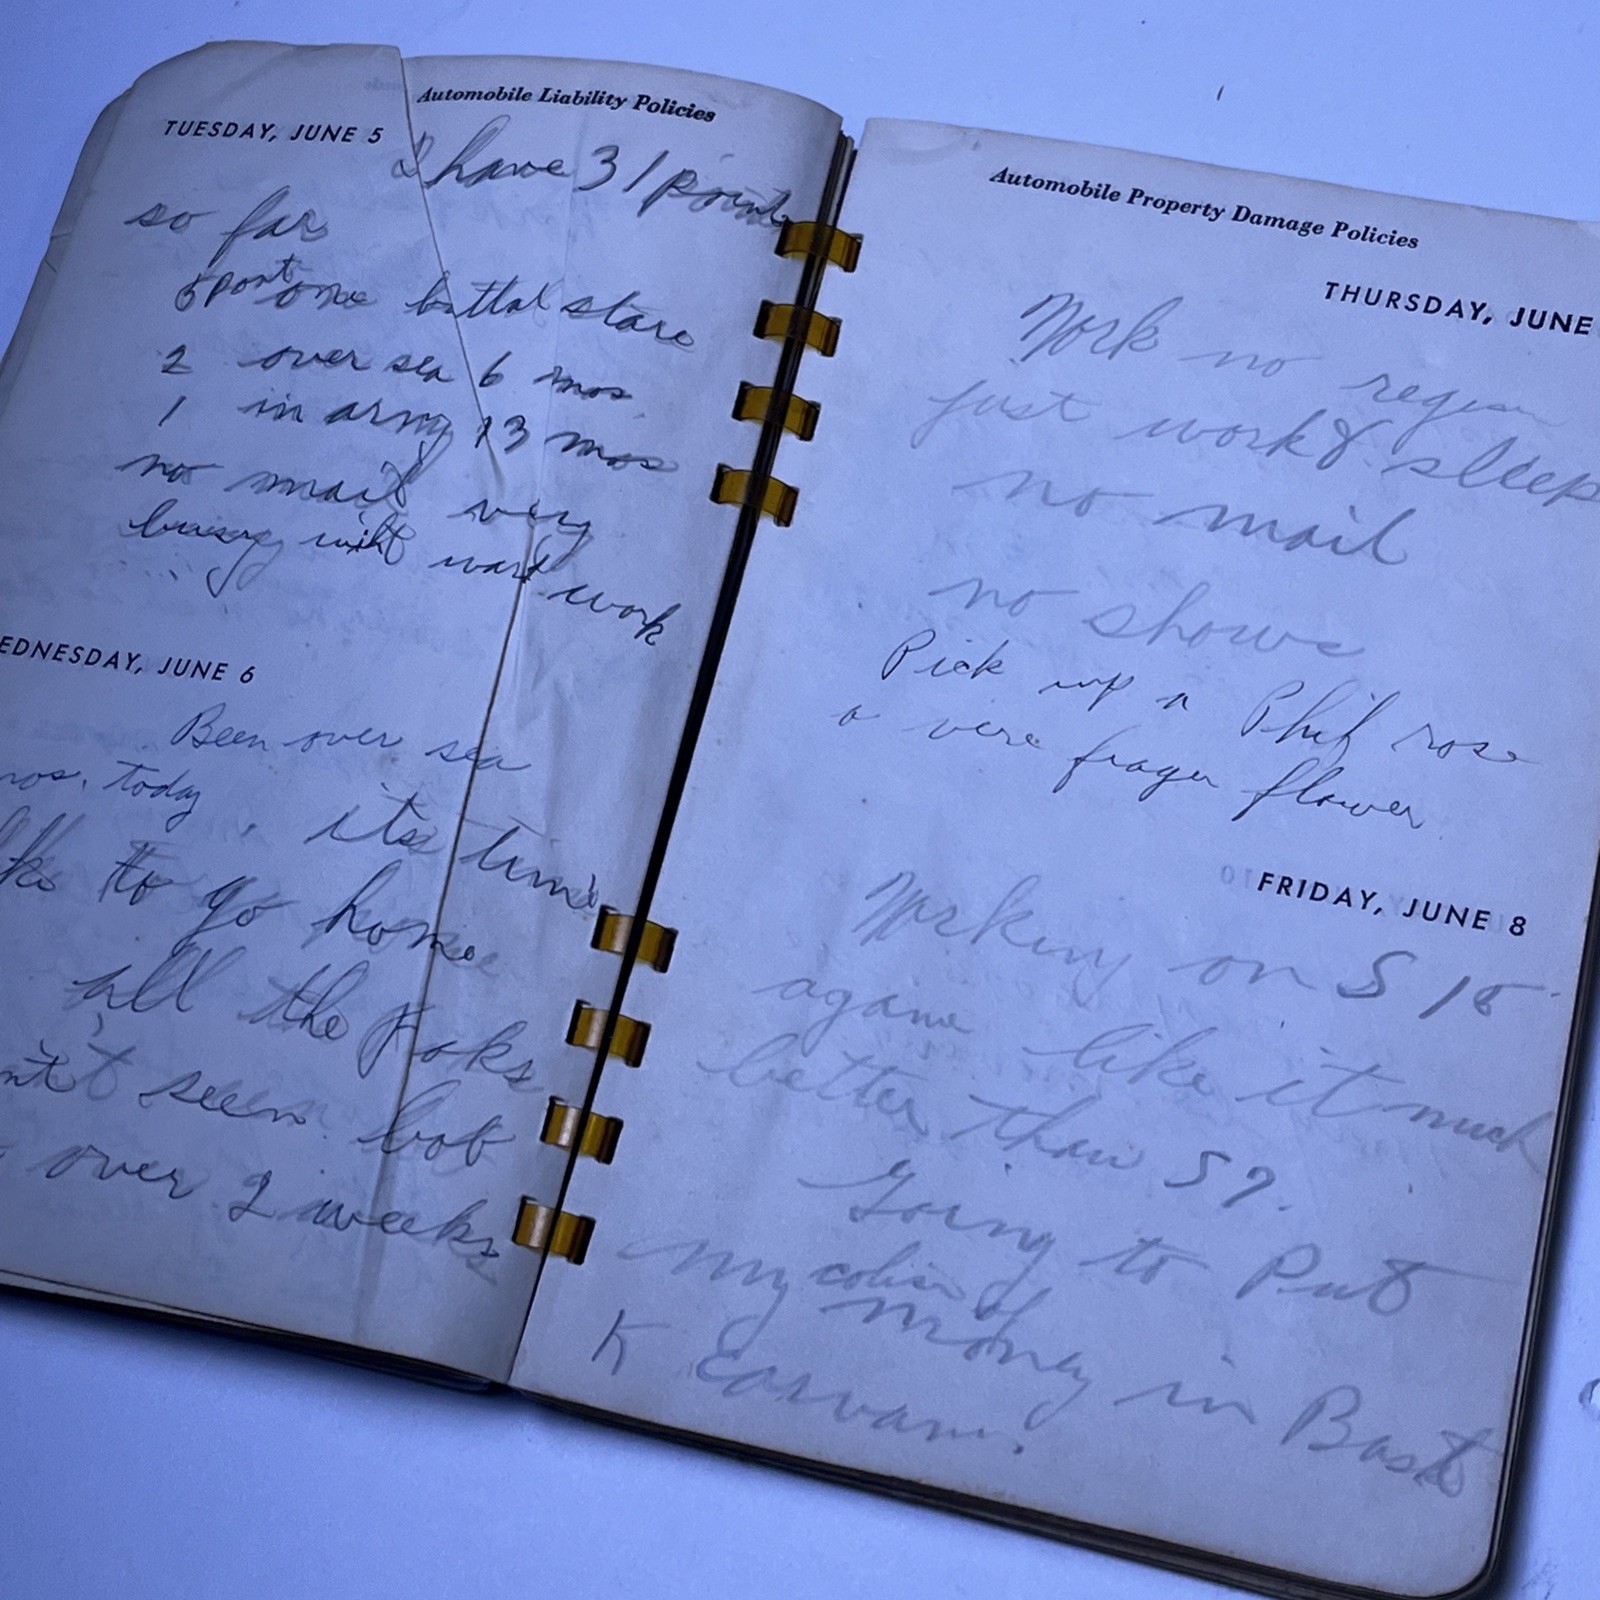 Automobile Liability Policies
TUESDAY, JUNE 5
I have 31 points
so far
5 pont one battal stare
2 over sea 6 mos
1 in army 13 mos
no mail very
busy with work
WEDNESDAY, JUNE 6
Been over sea
mos. today. its time
to go home
all the Foks
seem bob
over 2 weeks
Automobile Property Damage Policies
THURSDAY, JUNE
Work no
just work & sleep
no mail
no shows
Pick up a Phil rose
a vere flower
FRIDAY, JUNE 8
Working on S 18
agane like it much
better than S 7.
Going to Put
my
money in
K